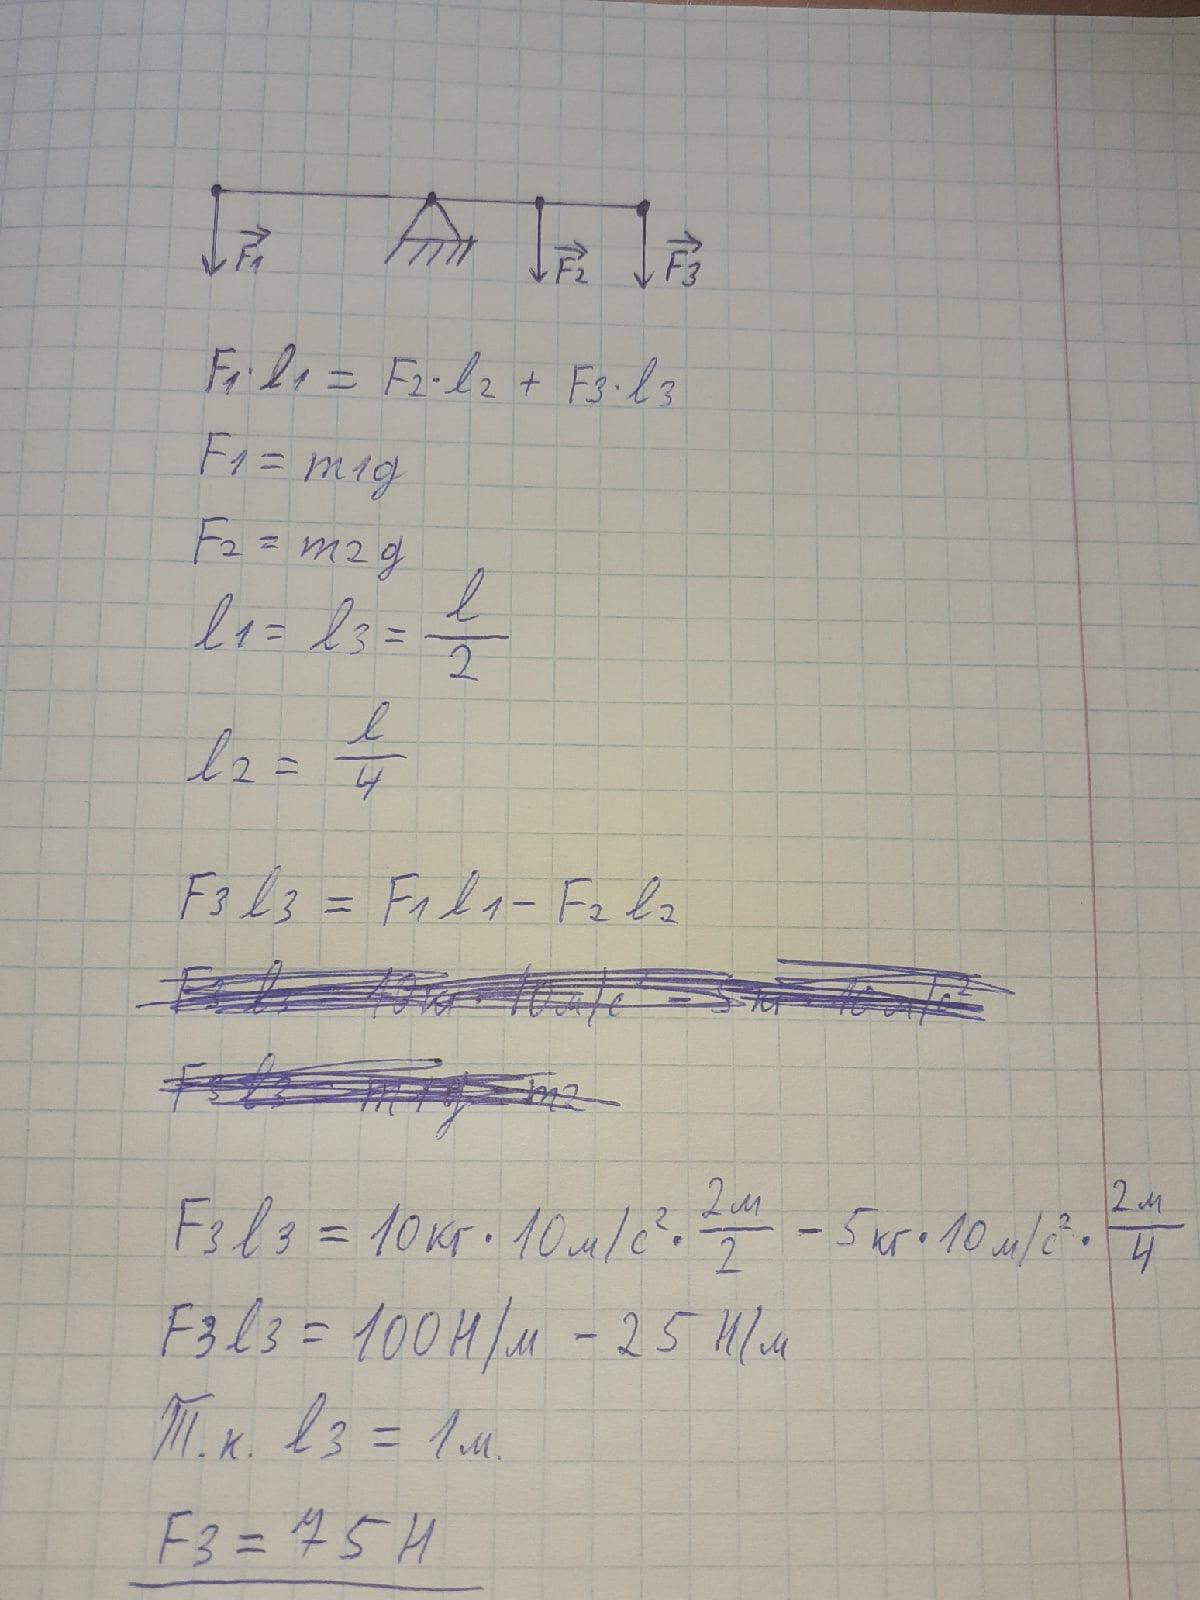 F1 F2 F3
F1·l1 = F2·l2 + F3·l3
F1 = m1g
F2 = m2g
l1 = l3 = l/2
l2 = l/4
F3 l3 = F1 l1 - F2 l2
F3 l3 = 10кг · 10м/с² · 2м/2 - 5кг · 10м/с² · 2м/4
F3 l3 = 100Н/м - 25Н/м
Т.к. l3 = 1м.
F3 = 75Н